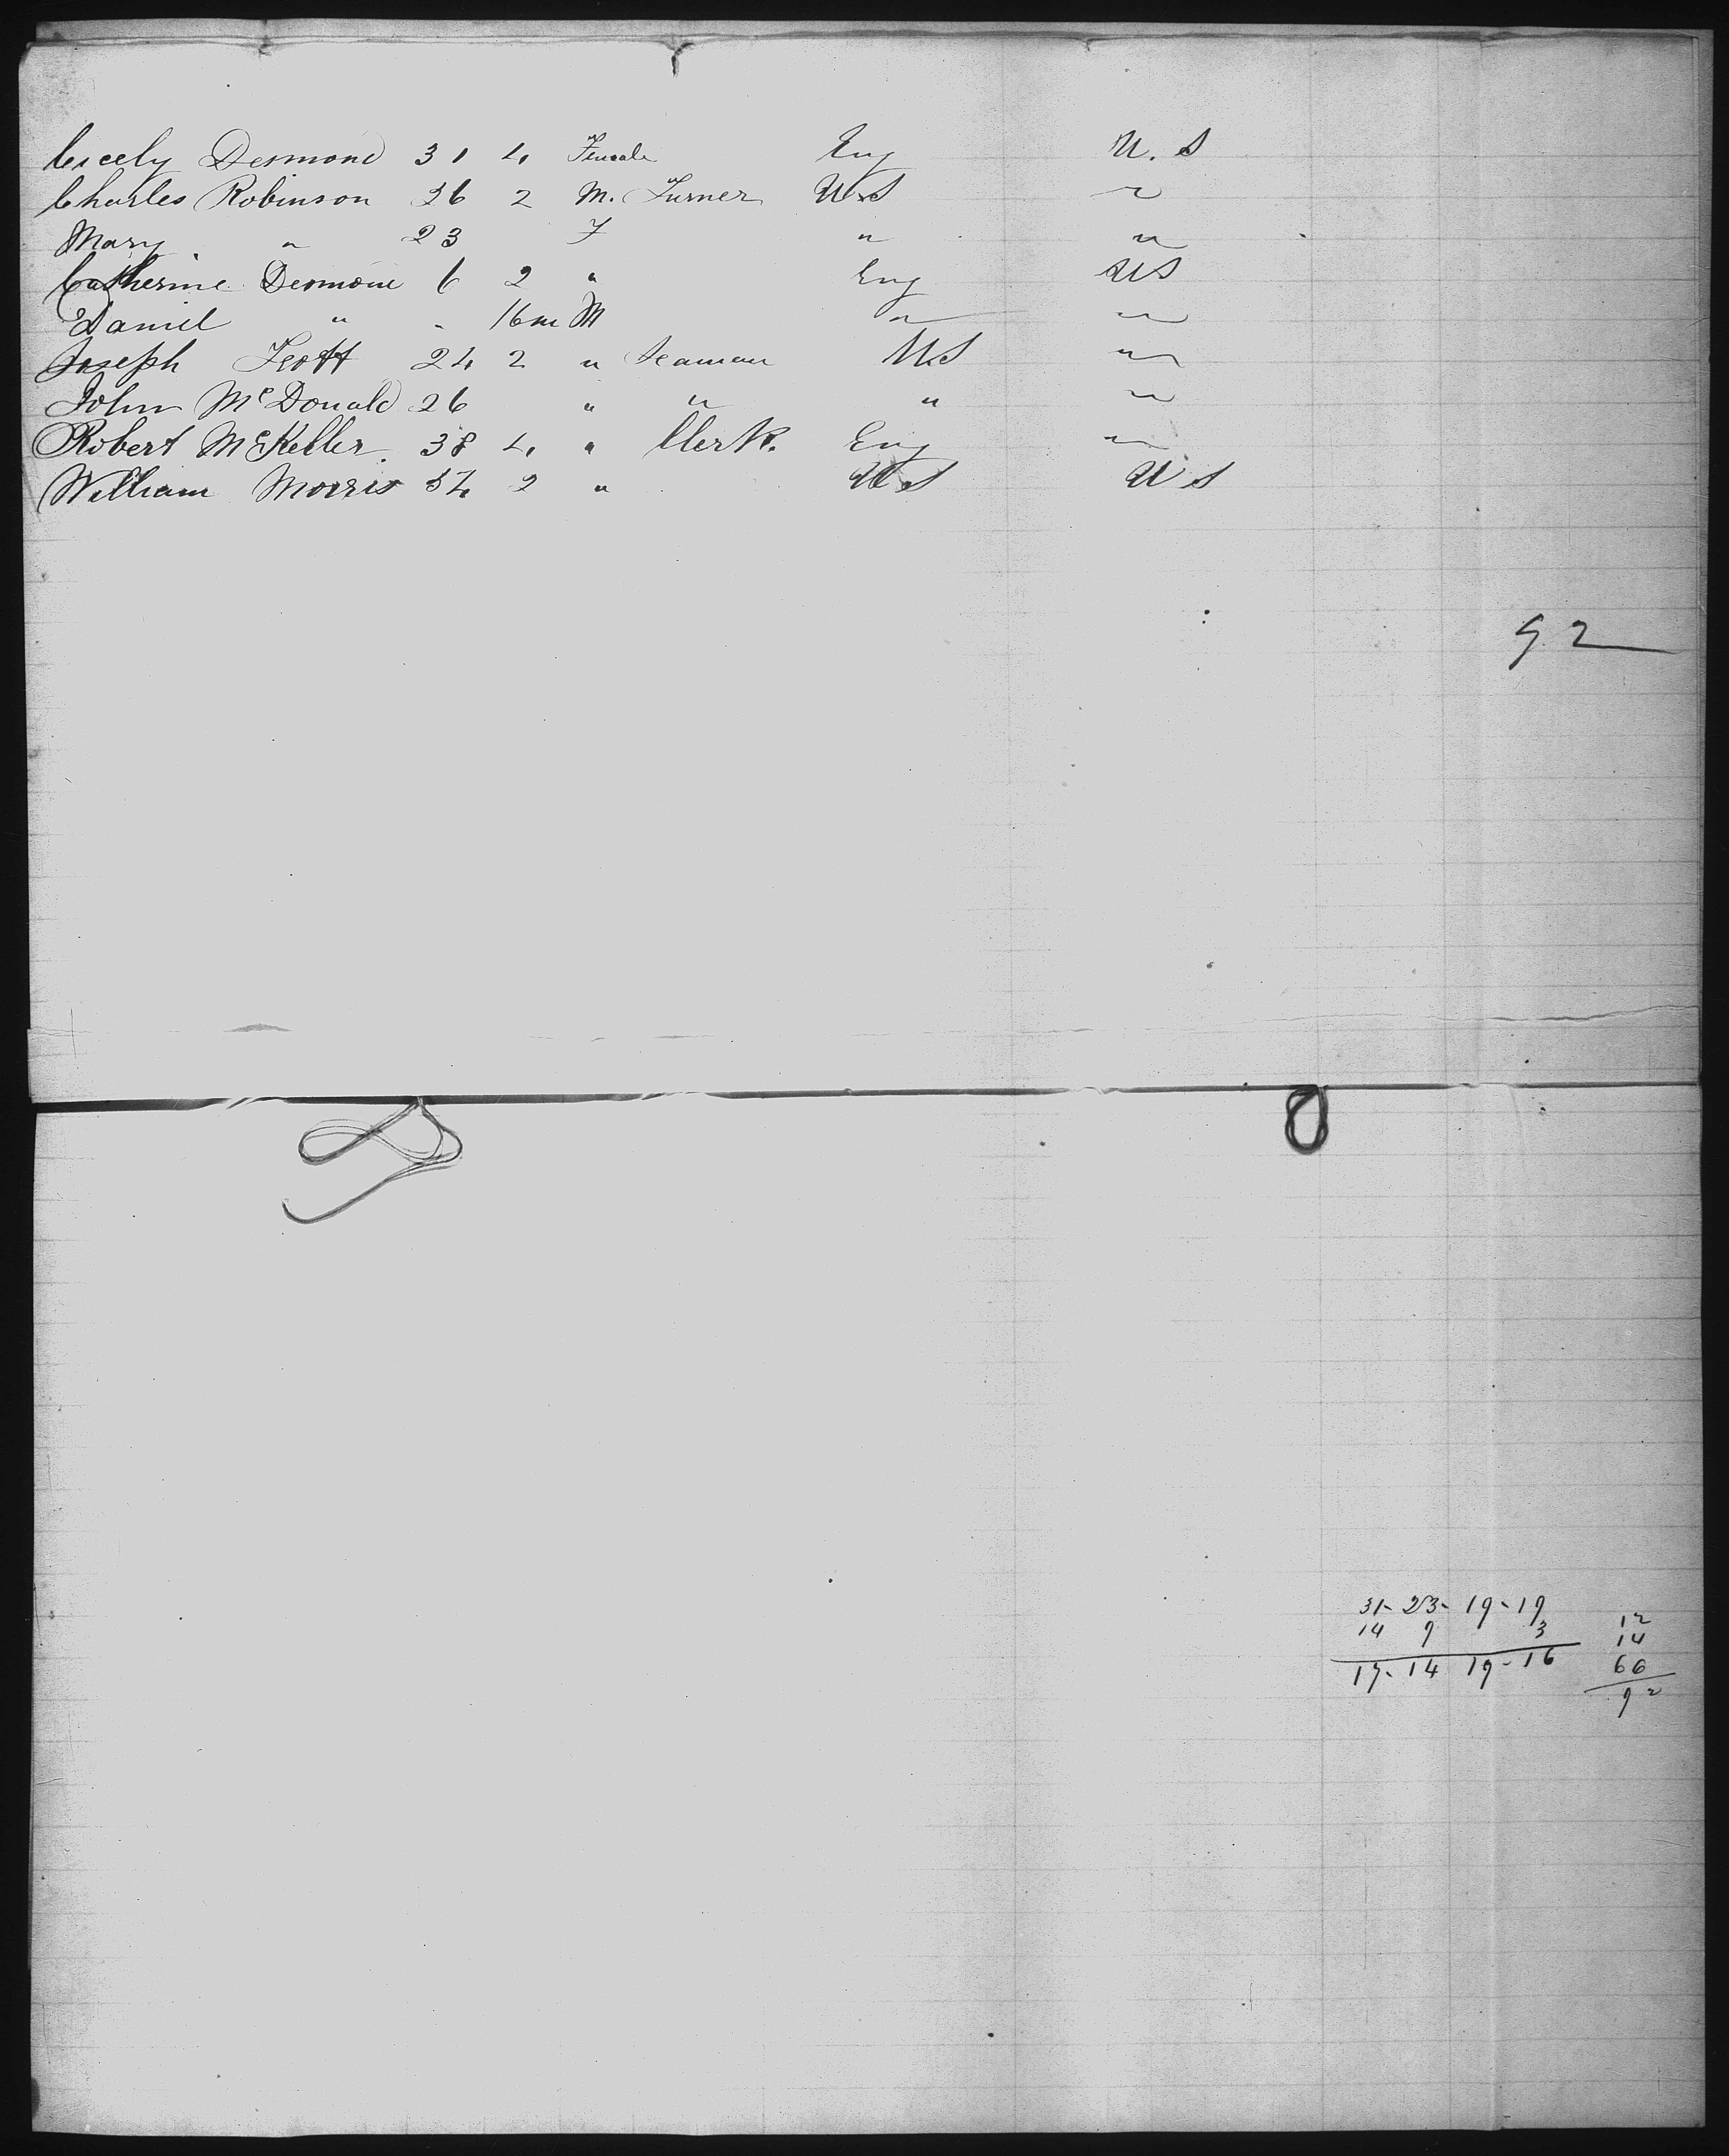 Cicely Desmond 31 4 Female Eng U. S
Charles Robinson 26 2 M. Turner U.S "
Mary " 23 F " "
Catherine Desmone 6 2 " Eng US
Daniel " - 16m M " "
Joseph 24 2 " Seaman U.S "
John McDonald 26 " " " "
Robert McKeller. 38 4 " Clerk. Eng "
William Morris 34 2 " U.S U S
92
31- 23- 19- 19
14 9 3
17- 14 19- 16
12
14
66
92